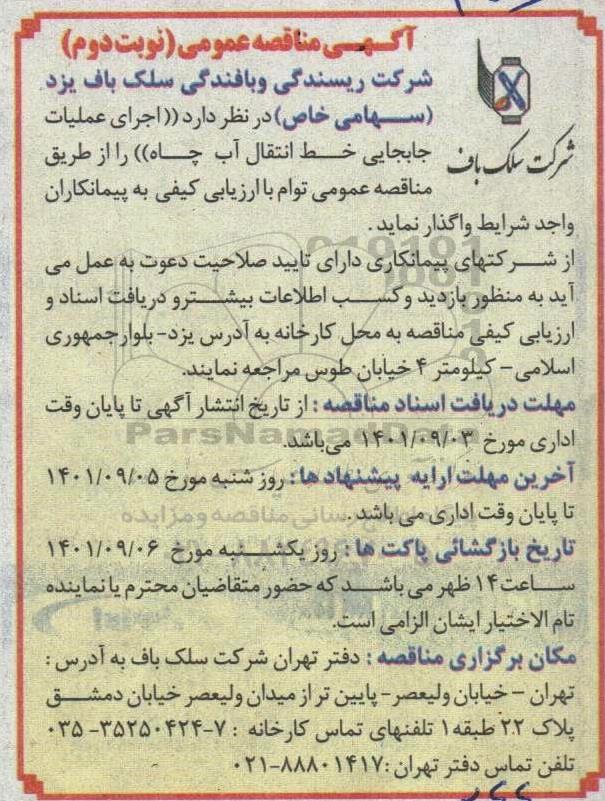 آگهی مناقصه عمومی (نوبت دوم)
شرکت ریسندگی وبافندگی سلک باف یزد
(سهامی خاص) در نظر دارد ((اجرای عملیات
جابجایی خط انتقال آب چاه)) را از طریق
شرکت سلک باف
مناقصه عمومی توام با ارزیابی کیفی به پیمانکاران
واجد شرایط واگذار نماید.
از شرکتهای پیمانکاری دارای تایید صلاحیت دعوت به عمل می
آید به منظور بازدید وکسب اطلاعات بیشترو دریافت اسناد و
ارزیابی کیفی مناقصه به محل کارخانه به آدرس یزد- بلوارجمهوری
اسلامی- کیلومتر ۴ خیابان طوس مراجعه نمایند.
مهلت دریافت اسناد مناقصه : از تاریخ انتشار آگهی تا پایان وقت
اداری مورخ ۱۴۰۱/۰۹/۰۳ می‌باشد.
ParsNamadData
آخرین مهلت ارایه پیشنهاد ها : روز شنبه مورخ ۱۴۰۱/۰۹/۰۵
تا پایان وقت اداری می باشد .
تاریخ بازگشائی پاکت ها : روز یکشنبه مورخ ۱۴۰۱/۰۹/۰۶
ساعت۱۴ ظهر می باشد که حضور متقاضیان محترم یا نماینده
تام الاختیار ایشان الزامی است.
مکان برگزاری مناقصه : دفتر تهران شرکت سلک باف به آدرس :
تهران – خیابان ولیعصر- پایین تر از میدان ولیعصر خیابان دمشق
پلاک ۲۲ طبقه۱ تلفنهای تماس کارخانه : ۷-۳۵۲۵۰۴۲۴-۰۳۵
تلفن تماس دفتر تهران :۸۸۸۰۱۴۱۷-۰۲۱